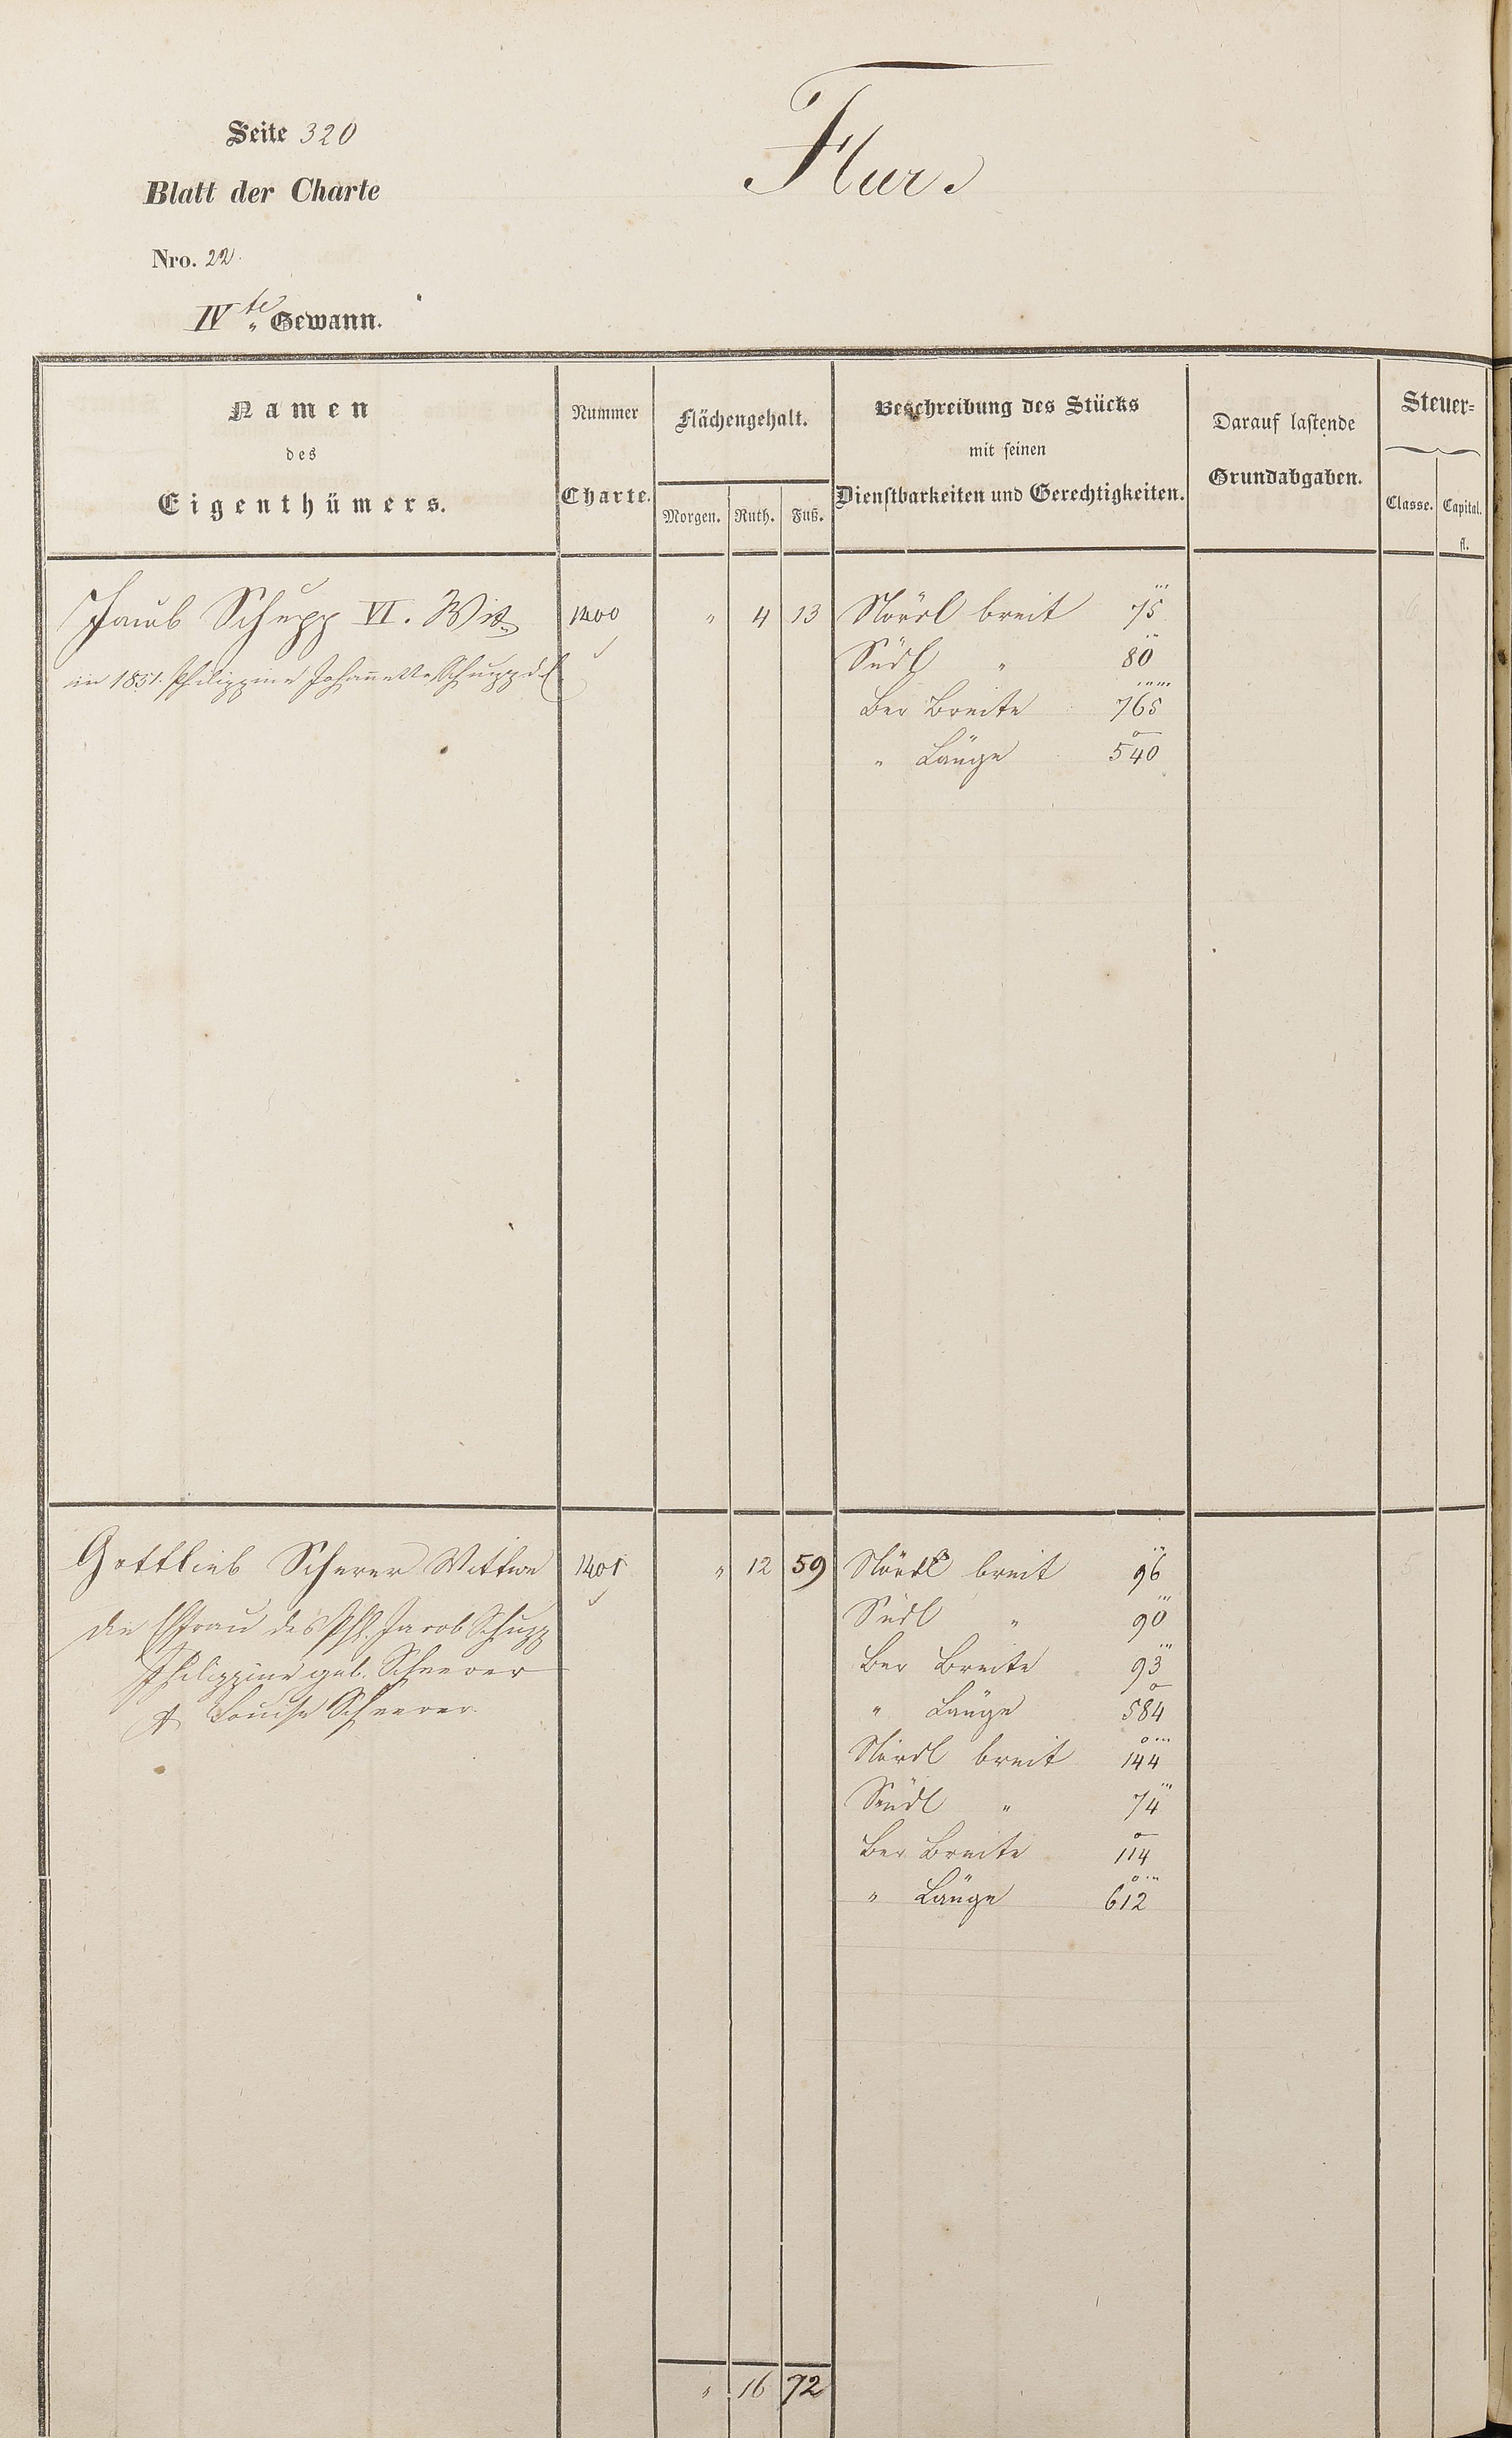 Seite 320
Flur.
Blatt der Charte
Nro. 22.
IV te " Gewann.
Namen
des
Eigenthümers.
Nummer
Charte.
Flächengehalt.
Morgen. Ruth. Fuß.
Beschreibung des Stücks
mit seinen
Dienstbarkeiten und Gerechtigkeiten.
Darauf lastende
Grundabgaben.
Steuer=
Classe. Capital.
fl.
Jacob Schupp VI. Wit. 1400 " 4 13 Nördl breit 75'''
Südl " 80''
in 1851. Philippine Johannette Schupp
Ber Breite 765''''
" Länge 540°
Gottlieb Scherer Wittwe 1401 " 12 59 Nördl breit 96''
die Ehfrau des Phl. Jacob Schupp Südl " 90'''
Philippine geb. Scheerer Ber Breite 93'''
Louise Scheerer. " Länge 584°
Nördl breit 144°'''
Südl " 74'''
Ber Breite 114°
" Länge 612°'''
" 16 72